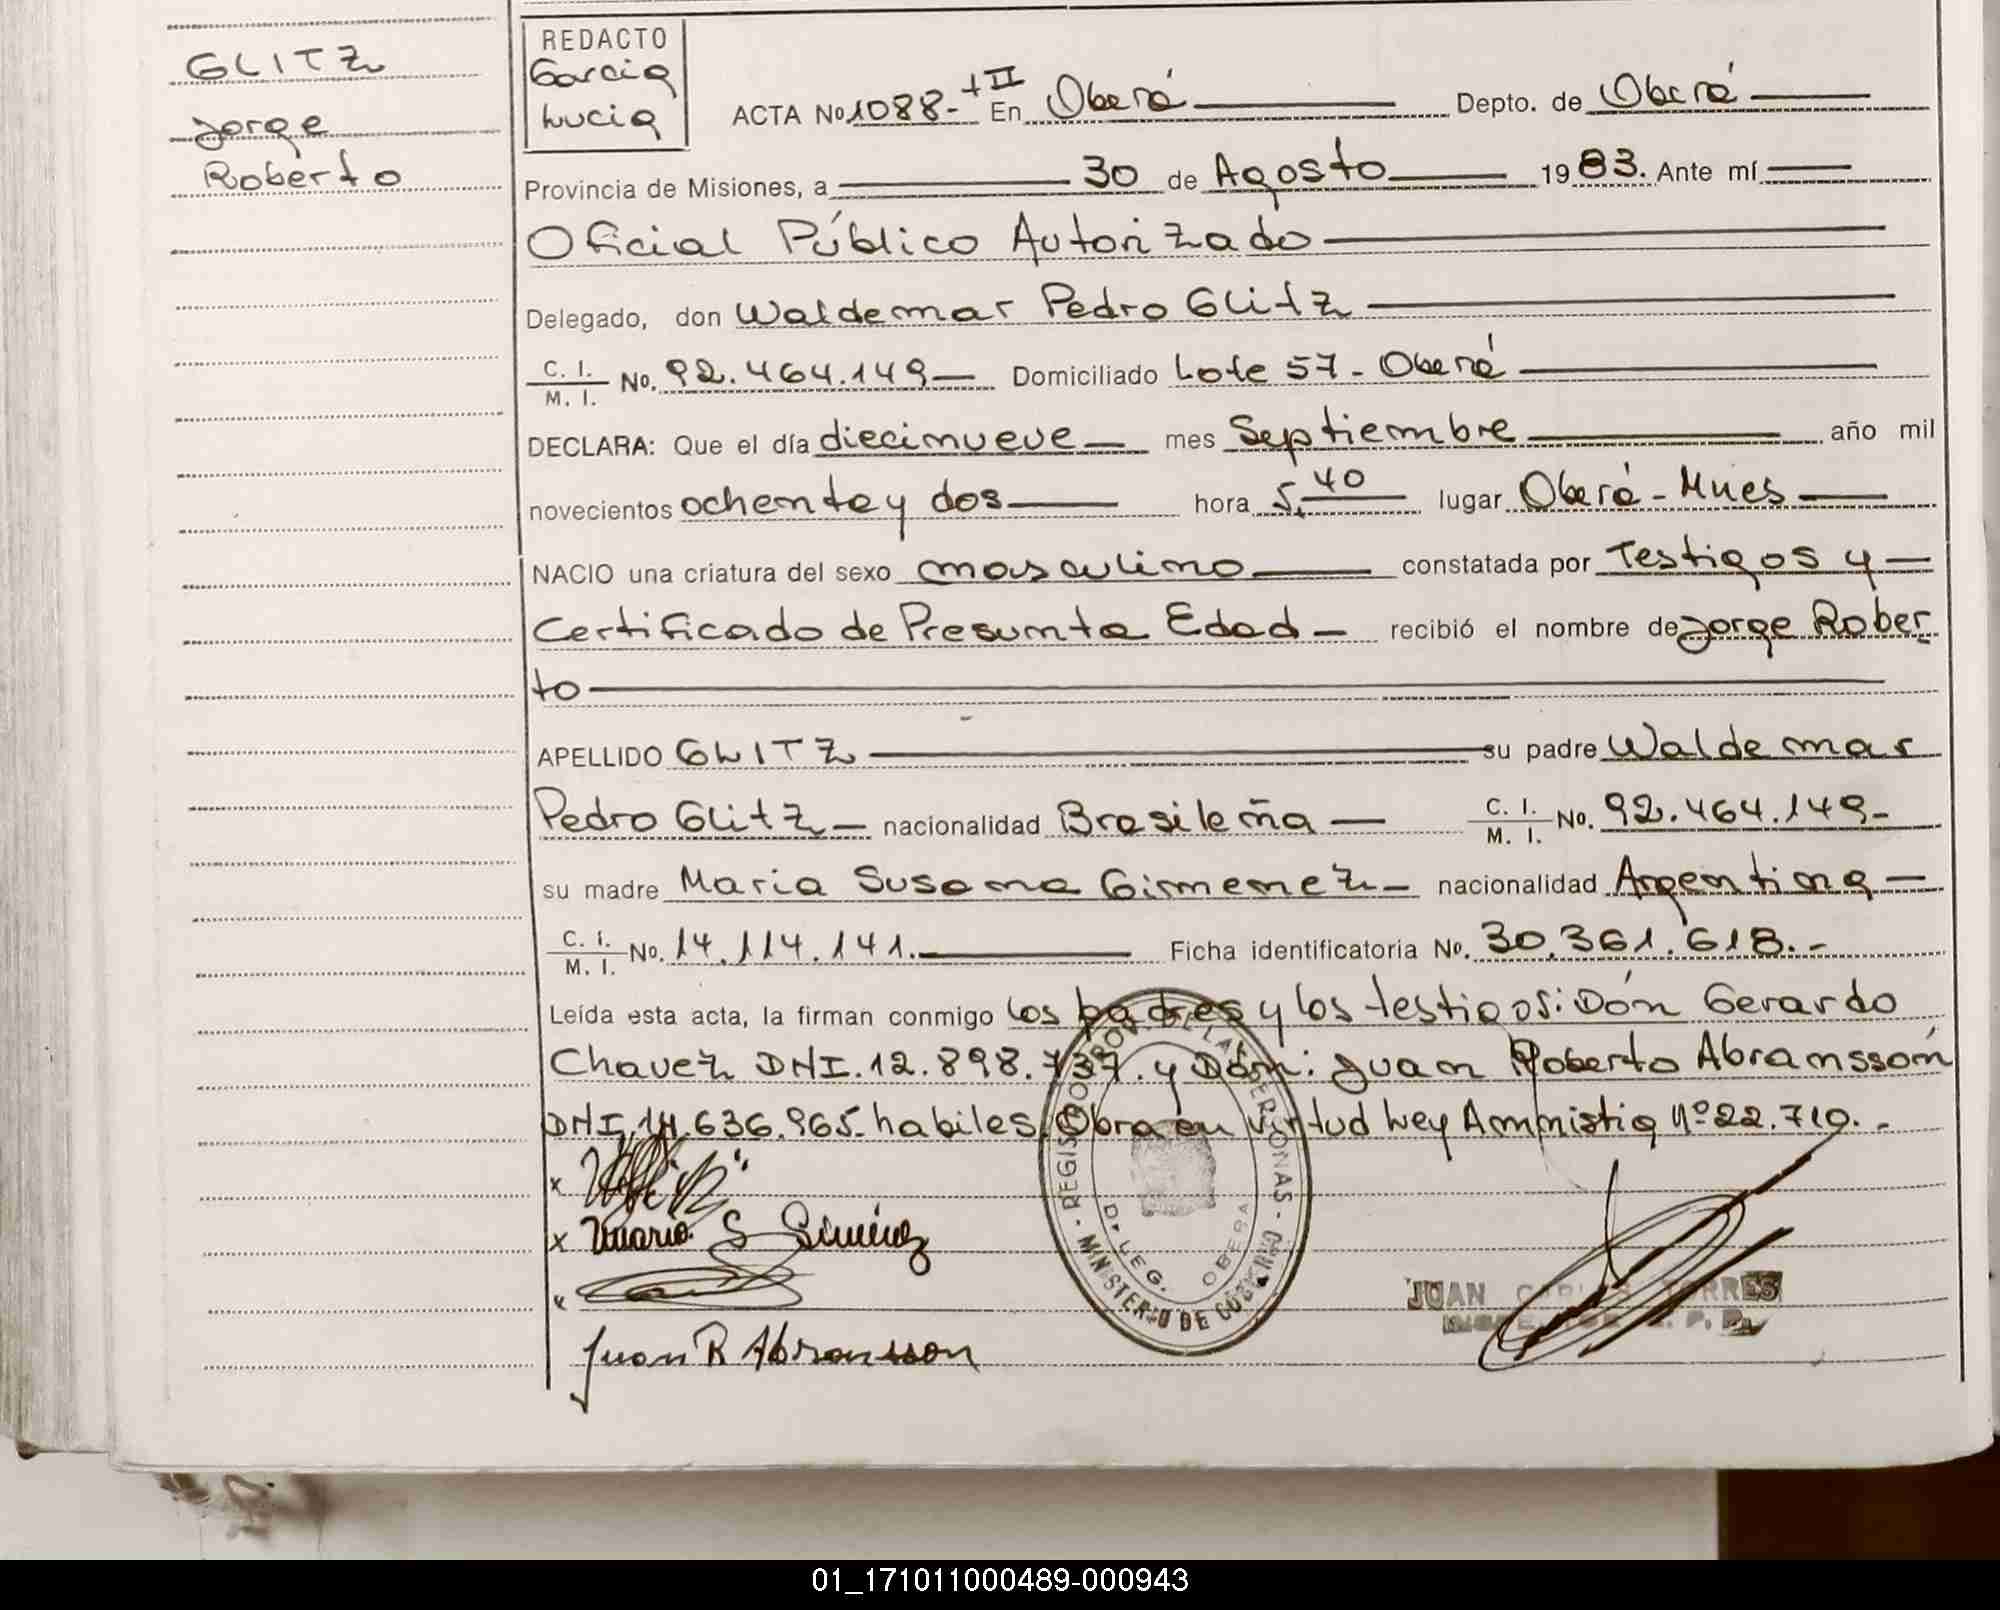 GLITZ
Jorge
Roberto
REDACTO
Garcia
Lucia
ACTA No 1088-tII En Oberá Depto. de Oberá
Provincia de Misiones, a 30 de Agosto 1983. Ante mí
Oficial Público Autorizado
Delegado, don Waldemar Pedro Glitz
C. I. / M. I. No. 92.464.149 Domiciliado Lote 57 - Oberá
DECLARA: Que el día diecinueve mes Septiembre año mil
novecientos ochenta y dos hora 5,40 lugar Oberá - Mnes
NACIO una criatura del sexo masculino constatada por Testigos y
Certificado de Presunta Edad - recibió el nombre de Jorge Rober
to
APELLIDO GLITZ su padre Waldemar
Pedro Glitz nacionalidad Brasileña C. I. / M. I. No. 92.464.149-
su madre Maria Susana Gimenez nacionalidad Argentina
C. I. / M. I. No. 14.114.141. Ficha identificatoria No. 30.361.618.-
Leída esta acta, la firman conmigo los padres y los testigos: Dón Gerardo
Chavez DNI. 12.898.737. y Dón: Juan Roberto Abransson
DNI. 14.636.965. habiles. Obra en Virtud Ley Amnistia Nº 22.710.-
x
x Maria S Giménez
x
Juan R Abransson
REGISTRO PROV. DE LAS PERSONAS
MINISTERIO DE GOBIERNO
DELEG. OBERA
JUAN CARLOS TORRES
01_171011000489-000943